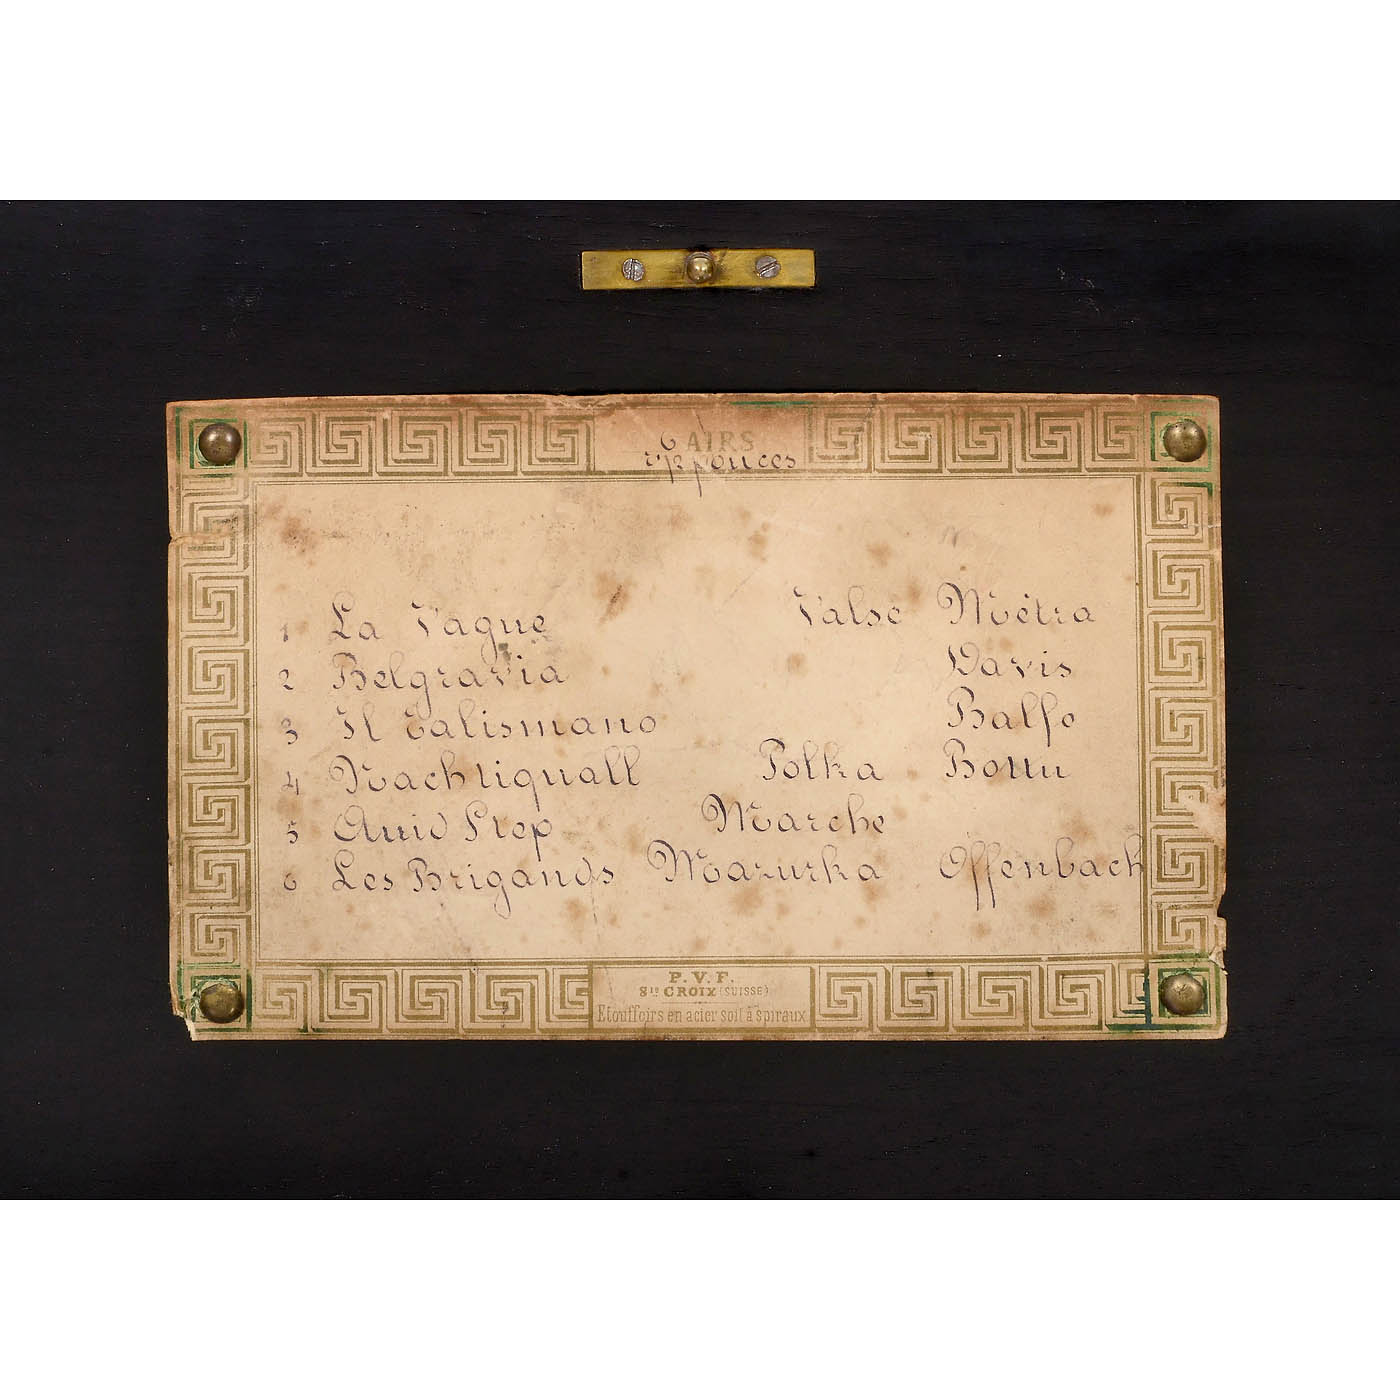 6 AIRS
pouces
1 La Vague Valse Métra
2 Belgravia Davis
3 Il Talismano Balfe
4 Nachtiguall Polka
5 Marche
6 Les Brigands Mazurka Offenbach
P. V. F.
Ste CROIX (SUISSE)
Etouffoirs en acier soit à spiraux